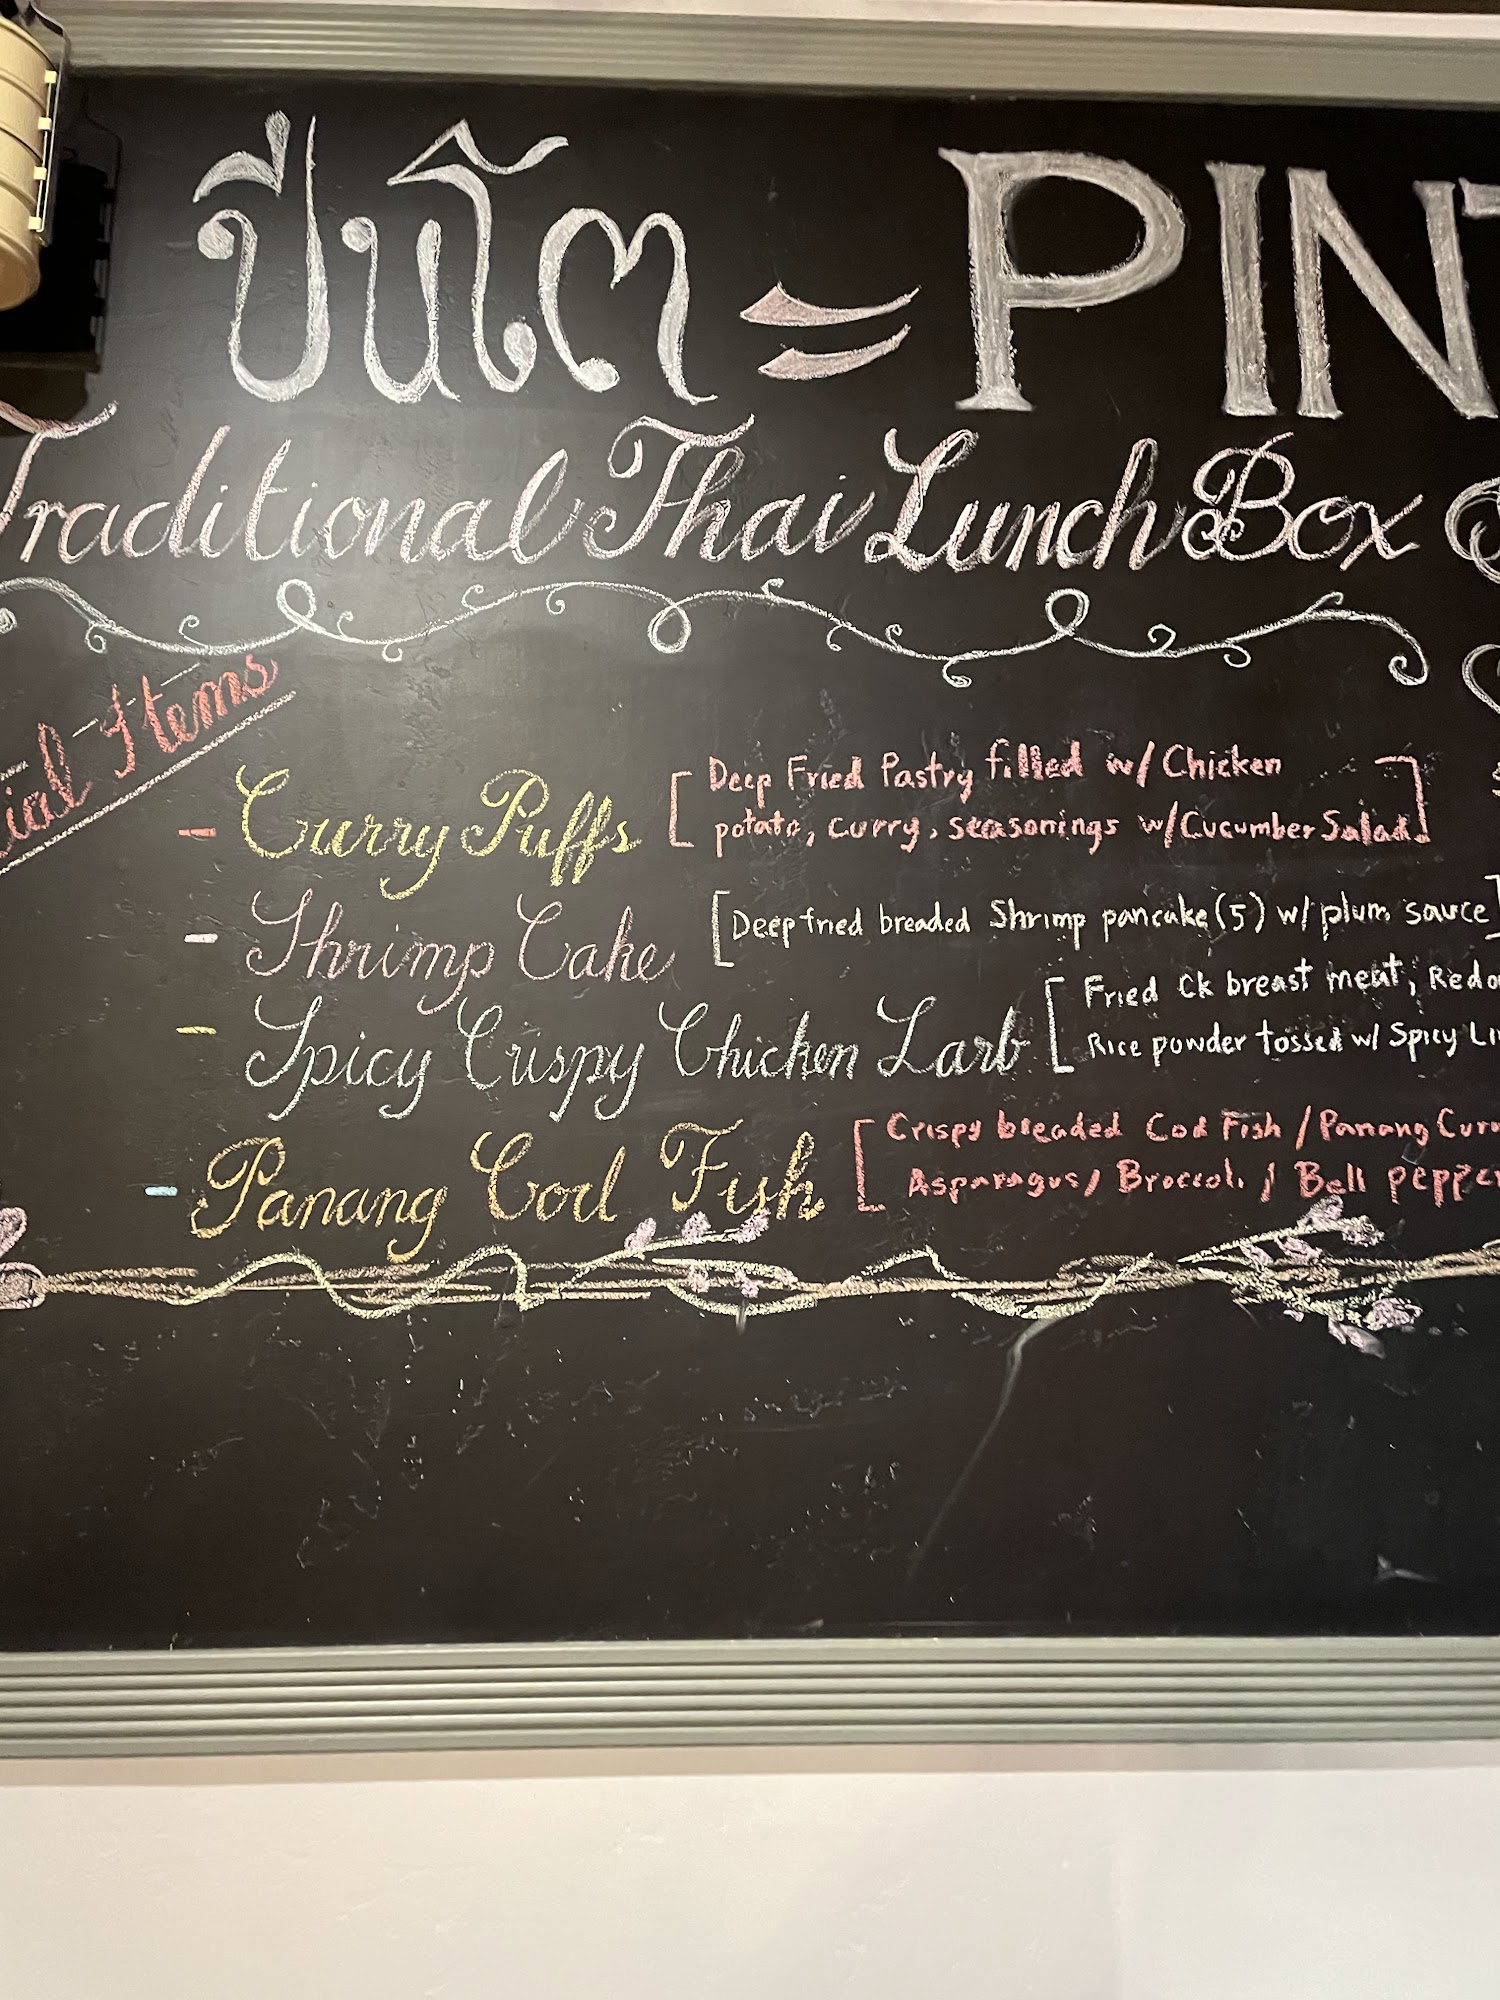 ปิ่นโต = PINT
Traditional Thai Lunch Box
cial Items
- Curry Puffs [Deep Fried Pastry filled w/ Chicken
potato, curry, seasonings w/Cucumber Salad]
- Shrimp Cake [Deep fried breaded Shrimp pancake (5) w/ plum sauce]
- Spicy Crispy Chicken Larb [Fried Ck breast meat, Red o
Rice powder tossed w/ Spicy Li
- Panang Cod Fish [Crispy breaded Cod Fish / Panang Curr
Asparagus / Broccoli / Bell pepper